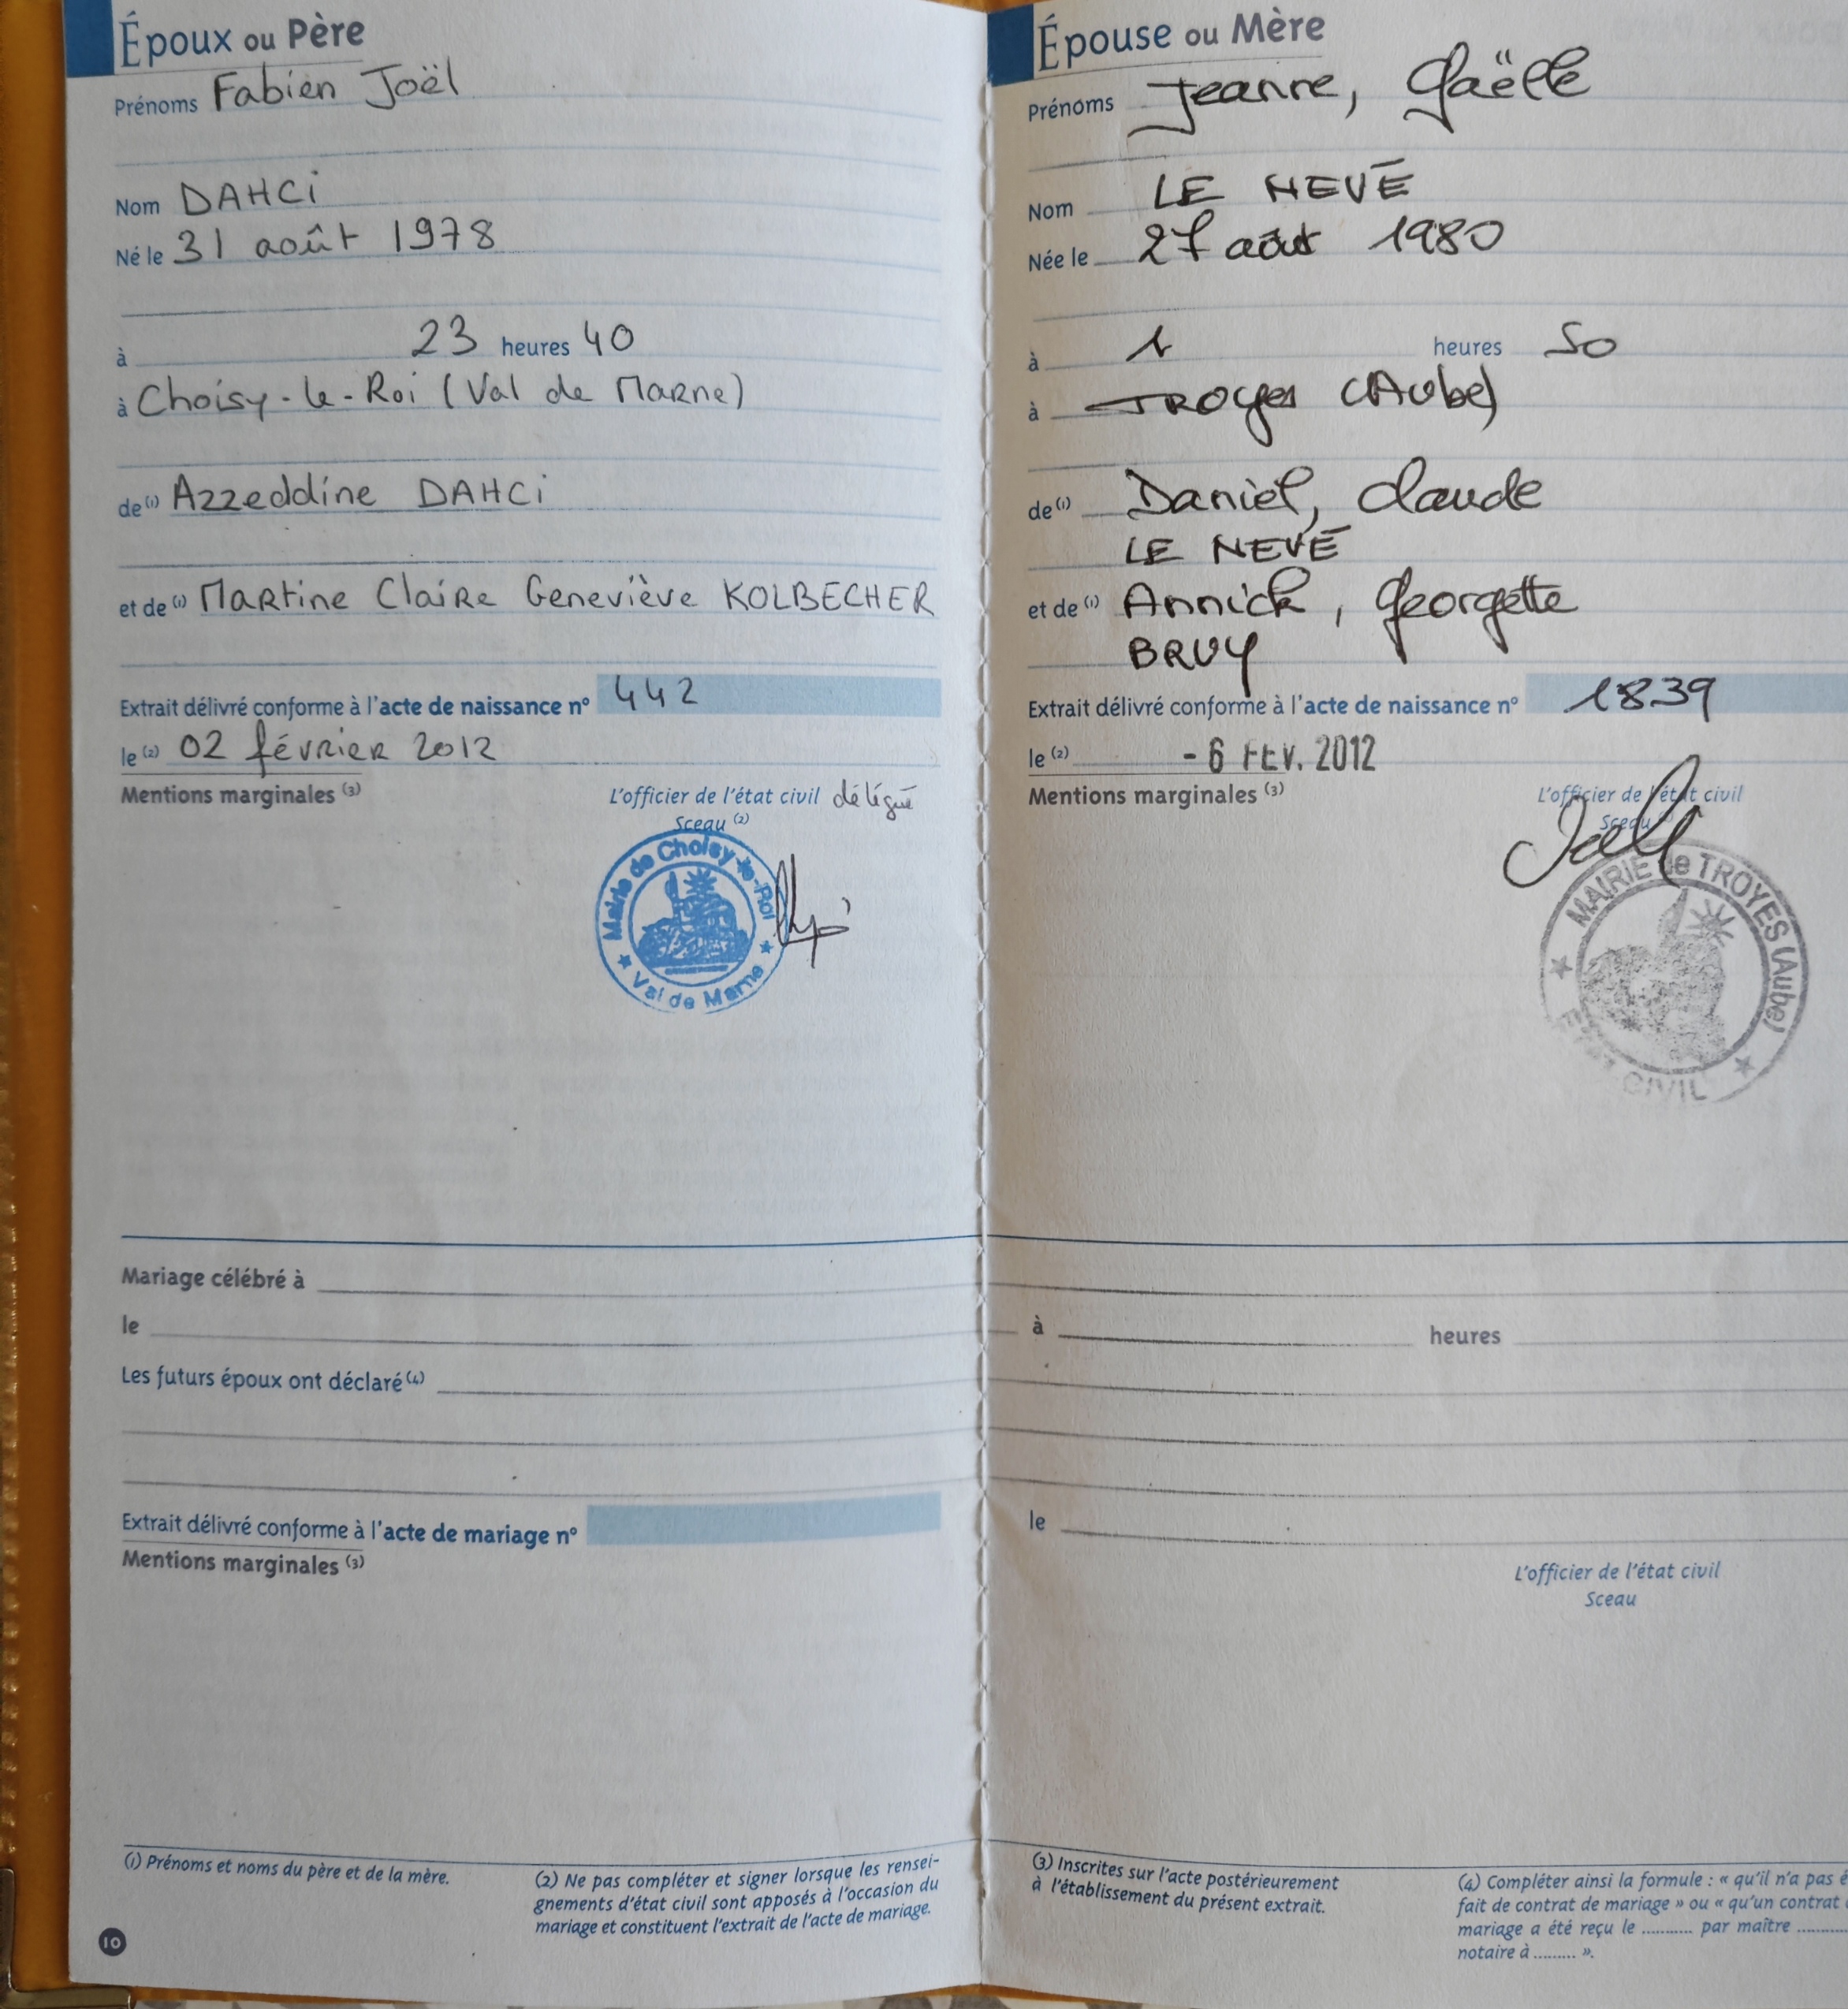 Époux ou Père
Prénoms Fabien Joël
Nom DAHCi
Né le 31 août 1978
à 23 heures 40
à Choisy-le-Roi (Val de Marne)
de (1) Azzeddine DAHCi
et de (1) Martine Claire Geneviève KOLBECHER
Extrait délivré conforme à l'acte de naissance n° 442
le (2) 02 février 2012
Mentions marginales (3)
L'officier de l'état civil délégué
Sceau (2)
Mairie de Choisy-le-Roi
★ Val de Marne ★
Mariage célébré à
le
Les futurs époux ont déclaré (4)
Extrait délivré conforme à l'acte de mariage n°
Mentions marginales (3)
(1) Prénoms et noms du père et de la mère.
(2) Ne pas compléter et signer lorsque les rensei-
gnements d'état civil sont apposés à l'occasion du
mariage et constituent l'extrait de l'acte de mariage.
10
Épouse ou Mère
Prénoms Jeanne, Gaëlle
Nom LE NEVÉ
Née le 27 août 1980
à 1 heures 50
à TROYES (Aube)
de (1) Daniel, Claude
LE NEVÉ
et de (1) Annick, Georgette
BRUY
Extrait délivré conforme à l'acte de naissance n° 1839
le (2) - 6 FEV. 2012
Mentions marginales (3)
L'officier de l'état civil
Sceau
MAIRIE de TROYES (Aube)
★ ETAT CIVIL ★
à heures
le
L'officier de l'état civil
Sceau
(3) Inscrites sur l'acte postérieurement
à l'établissement du présent extrait.
(4) Compléter ainsi la formule : « qu'il n'a pas é
fait de contrat de mariage » ou « qu'un contrat
mariage a été reçu le ........... par maître ..........
notaire à ......... ».